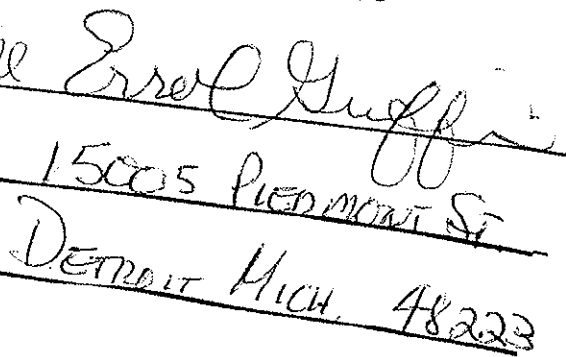 Errol Guffin
15005 PIEDMONT ST
DETROIT MICH. 48223